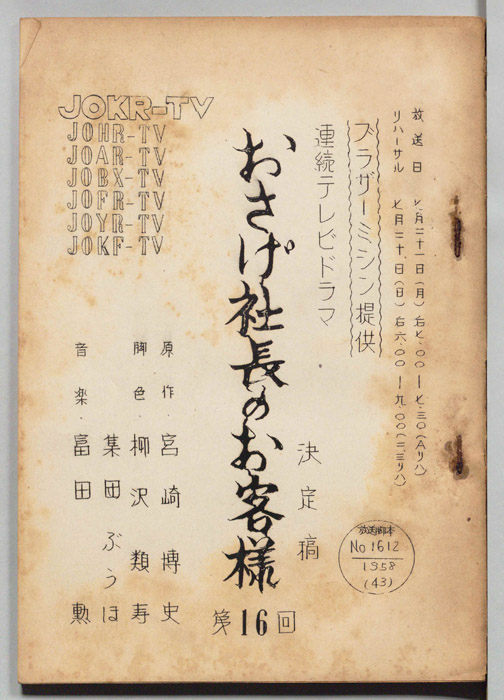 放送日 七月二十一日(月)后七.〇〇—七.三〇(Aリハ)
リハーサル 七月二十日(日)后六.〇〇—九.〇〇(二三リハ)
ブラザーミシン提供
連続テレビドラマ
おさげ社長のお客様
決定稿
第16回
原作・宮崎博史
脚色・柳沢類寿
集団ぶうほ
音楽・冨田勲
JOKR-TV
JOHR-TV
JOAR-TV
JOBX-TV
JOFR-TV
JOYR-TV
JOKF-TV
放送脚本
No 1612
1958
(43)